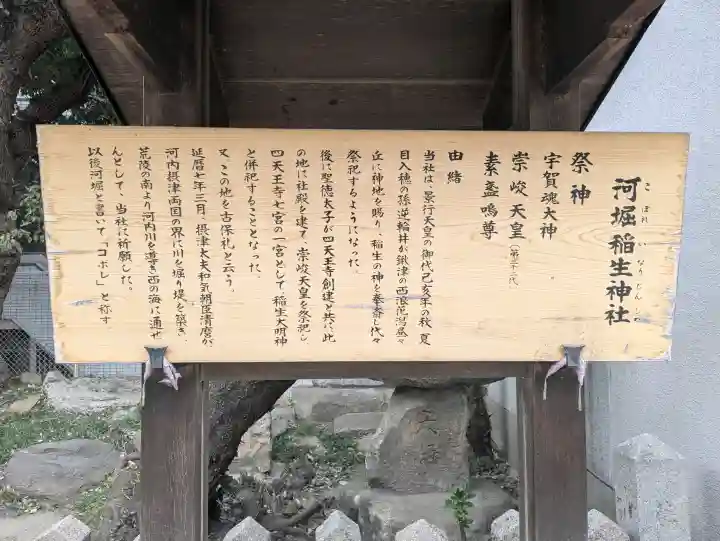 河堀稲生神社
こぼれ いなりじんじゃ
祭神
宇賀魂大神
崇峻天皇（第三十二代）
素盞嗚尊
由緒
当社は、景行天皇の御代己亥年の秋、夏
目入穂の孫逆輪井が鍬津の西浪茫潟
丘に神地を賜り、稲生の神を奉斎し代々
祭祀するようになった。
後に聖徳太子が四天王寺創建と共に此
の地に社殿を建て、崇峻天皇を祭祀し
四天王寺七宮の一宮として稲生大明神
と併祀することとなった。
又、この地を古保礼と云う。
延暦七年三月、摂津太夫和気朝臣清麿が、
河内摂津両国の界に川を堀り堤を築き、
荒陵の南より河内川を導き西の海に通せ
んとして、当社に祈願した。
以後河堀と書いて「コボレ」と称す